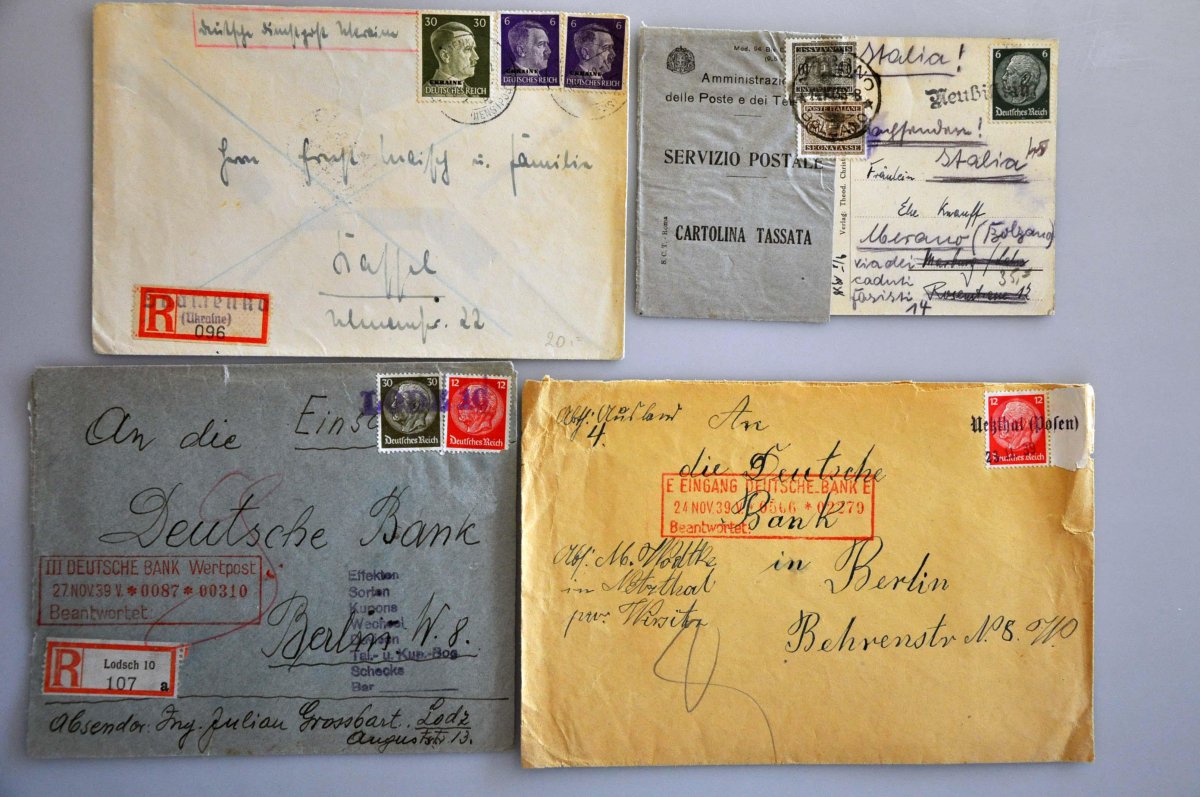 Deutsche Dienstpost Ukraine
30 30
UKRAINE
DEUTSCHES REICH
6 6
UKRAINE
DEUTSCHES REICH
6 6
UKRAINE
DEUTSCHES REICH
Herrn Ernst u. Familie
Kassel
22
R
(Ukraine)
096
20.-
Mod. 94
Amministrazione
delle Poste e dei Te
SERVIZIO POSTALE
CARTOLINA TASSATA
S. C. T. Roma
SEGNATASSE
POSTE ITALIANE
SEGNATASSE
BOLZANO
Italia!
6 6
Deutsches Reich
Nachsenden!
Italia
Fräulein
Else Knauff
Merano (Bolzano)
via dei Marburg / Lahn
caduti
fascisti Rosenstrasse 12
14
Verlag: Theod. Christ
30 30
Deutsches Reich
12 12
Deutsches Reich
An die
Deutsche Bank
Berlin W. 8.
III DEUTSCHE BANK Wertpost
27.NOV.39 V. *0087* 00310
Beantwortet:
Effekten
Sorten
Kupons
Wechsel
Devisen
Tal.- u. Kup.-Bog
Schecks
Bar
R
Lodsch 10
107 a
Absender: Ing. Julian Grossbart. Lodz
Auguststr 13.
Abt. Ausland
4.
12 12
Deutsches Reich
Netzthal (Posen)
An
die Deutsche
Bank
in Berlin
Behrenstr № 8. W
E EINGANG DEUTSCHE.BANK E
24 NOV.39.V * 0566 * 02279
Beantwortet:
Abs: M. Wodtke
in Netzthal
per Wirsitz